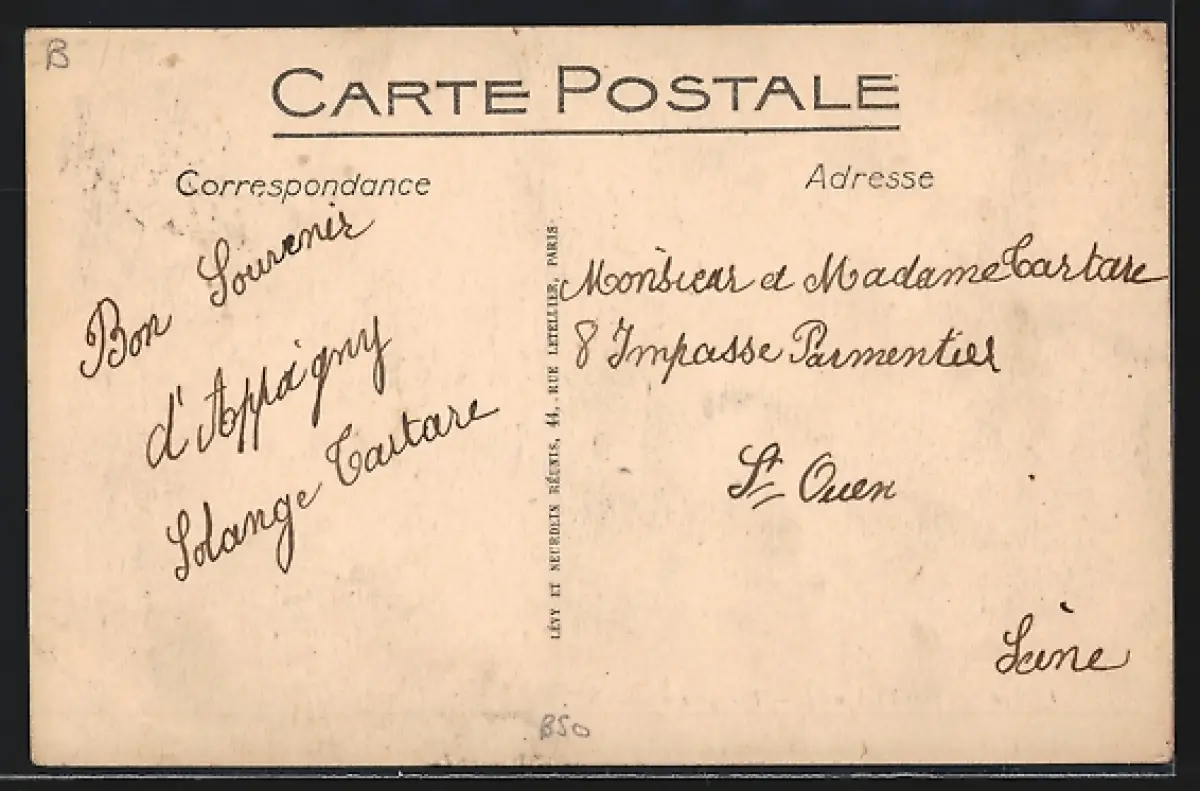 B
CARTE POSTALE
Correspondance
Bon Souvenir
d'Appoigny
Solange Tartare
LÉVY ET NEURDEIN RÉUNIS, 44, RUE LETELLIER, PARIS
Adresse
Monsieur et Madame Tartare
8 Impasse Parmentier
St Ouen
Seine
B50